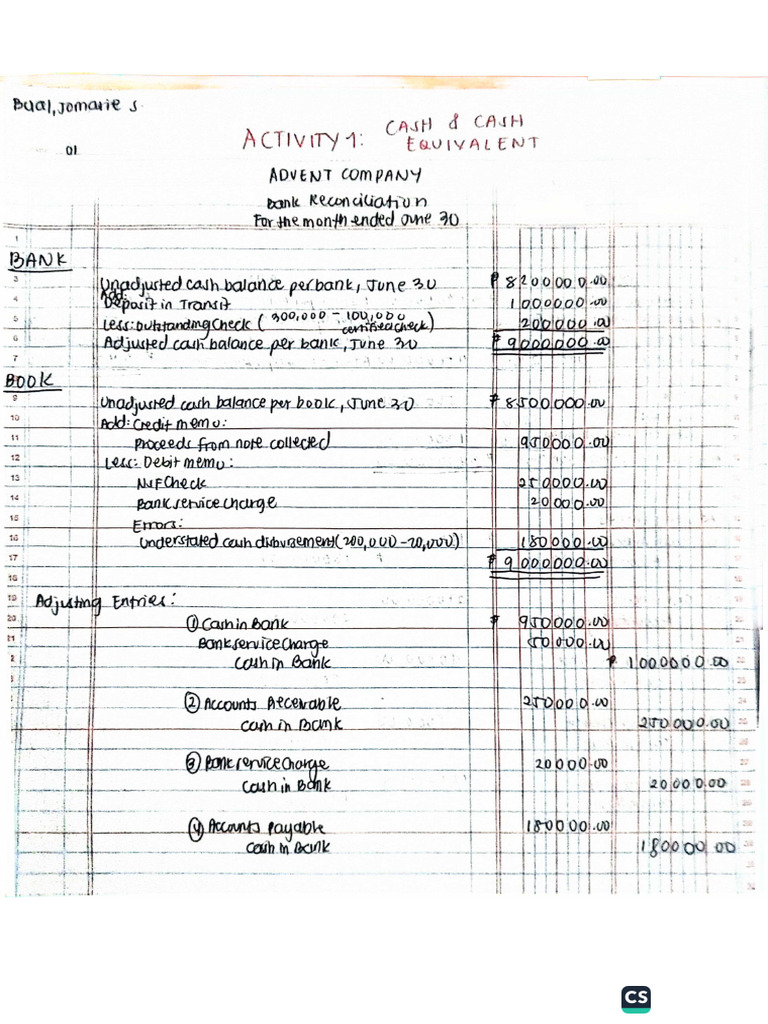 Bual, Jomarie S.
01
ACTIVITY 1: CASH & CASH
EQUIVALENT
ADVENT COMPANY
Bank Reconciliation
For the month ended June 30
BANK
Unadjusted cash balance per bank, June 30 ₱ 8200000.00
Add:
Deposit in Transit 1000000.00
Less: Outstanding Check (300,000 - 100,000 certified check) 200000.00
Adjusted cash balance per bank, June 30 ₱ 9000000.00
BOOK
Unadjusted cash balance per book, June 30 ₱ 8500000.00
Add: Credit memo:
Proceeds from note collected 950000.00
Less: Debit memo:
NSF Check 250000.00
Bank service charge 20000.00
Errors:
Understated cash disbursement (200,000 - 20,000) 180000.00
₱ 9000000.00
Adjusting Entries:
① Cash in Bank ₱ 950000.00
Bank service Charge 50000.00
Cash in Bank ₱ 1000000.00
② Accounts Receivable 250000.00
Cash in Bank 250000.00
③ Bank service Charge 20000.00
Cash in Bank 20000.00
④ Accounts Payable 180000.00
Cash in Bank 180000.00
CS